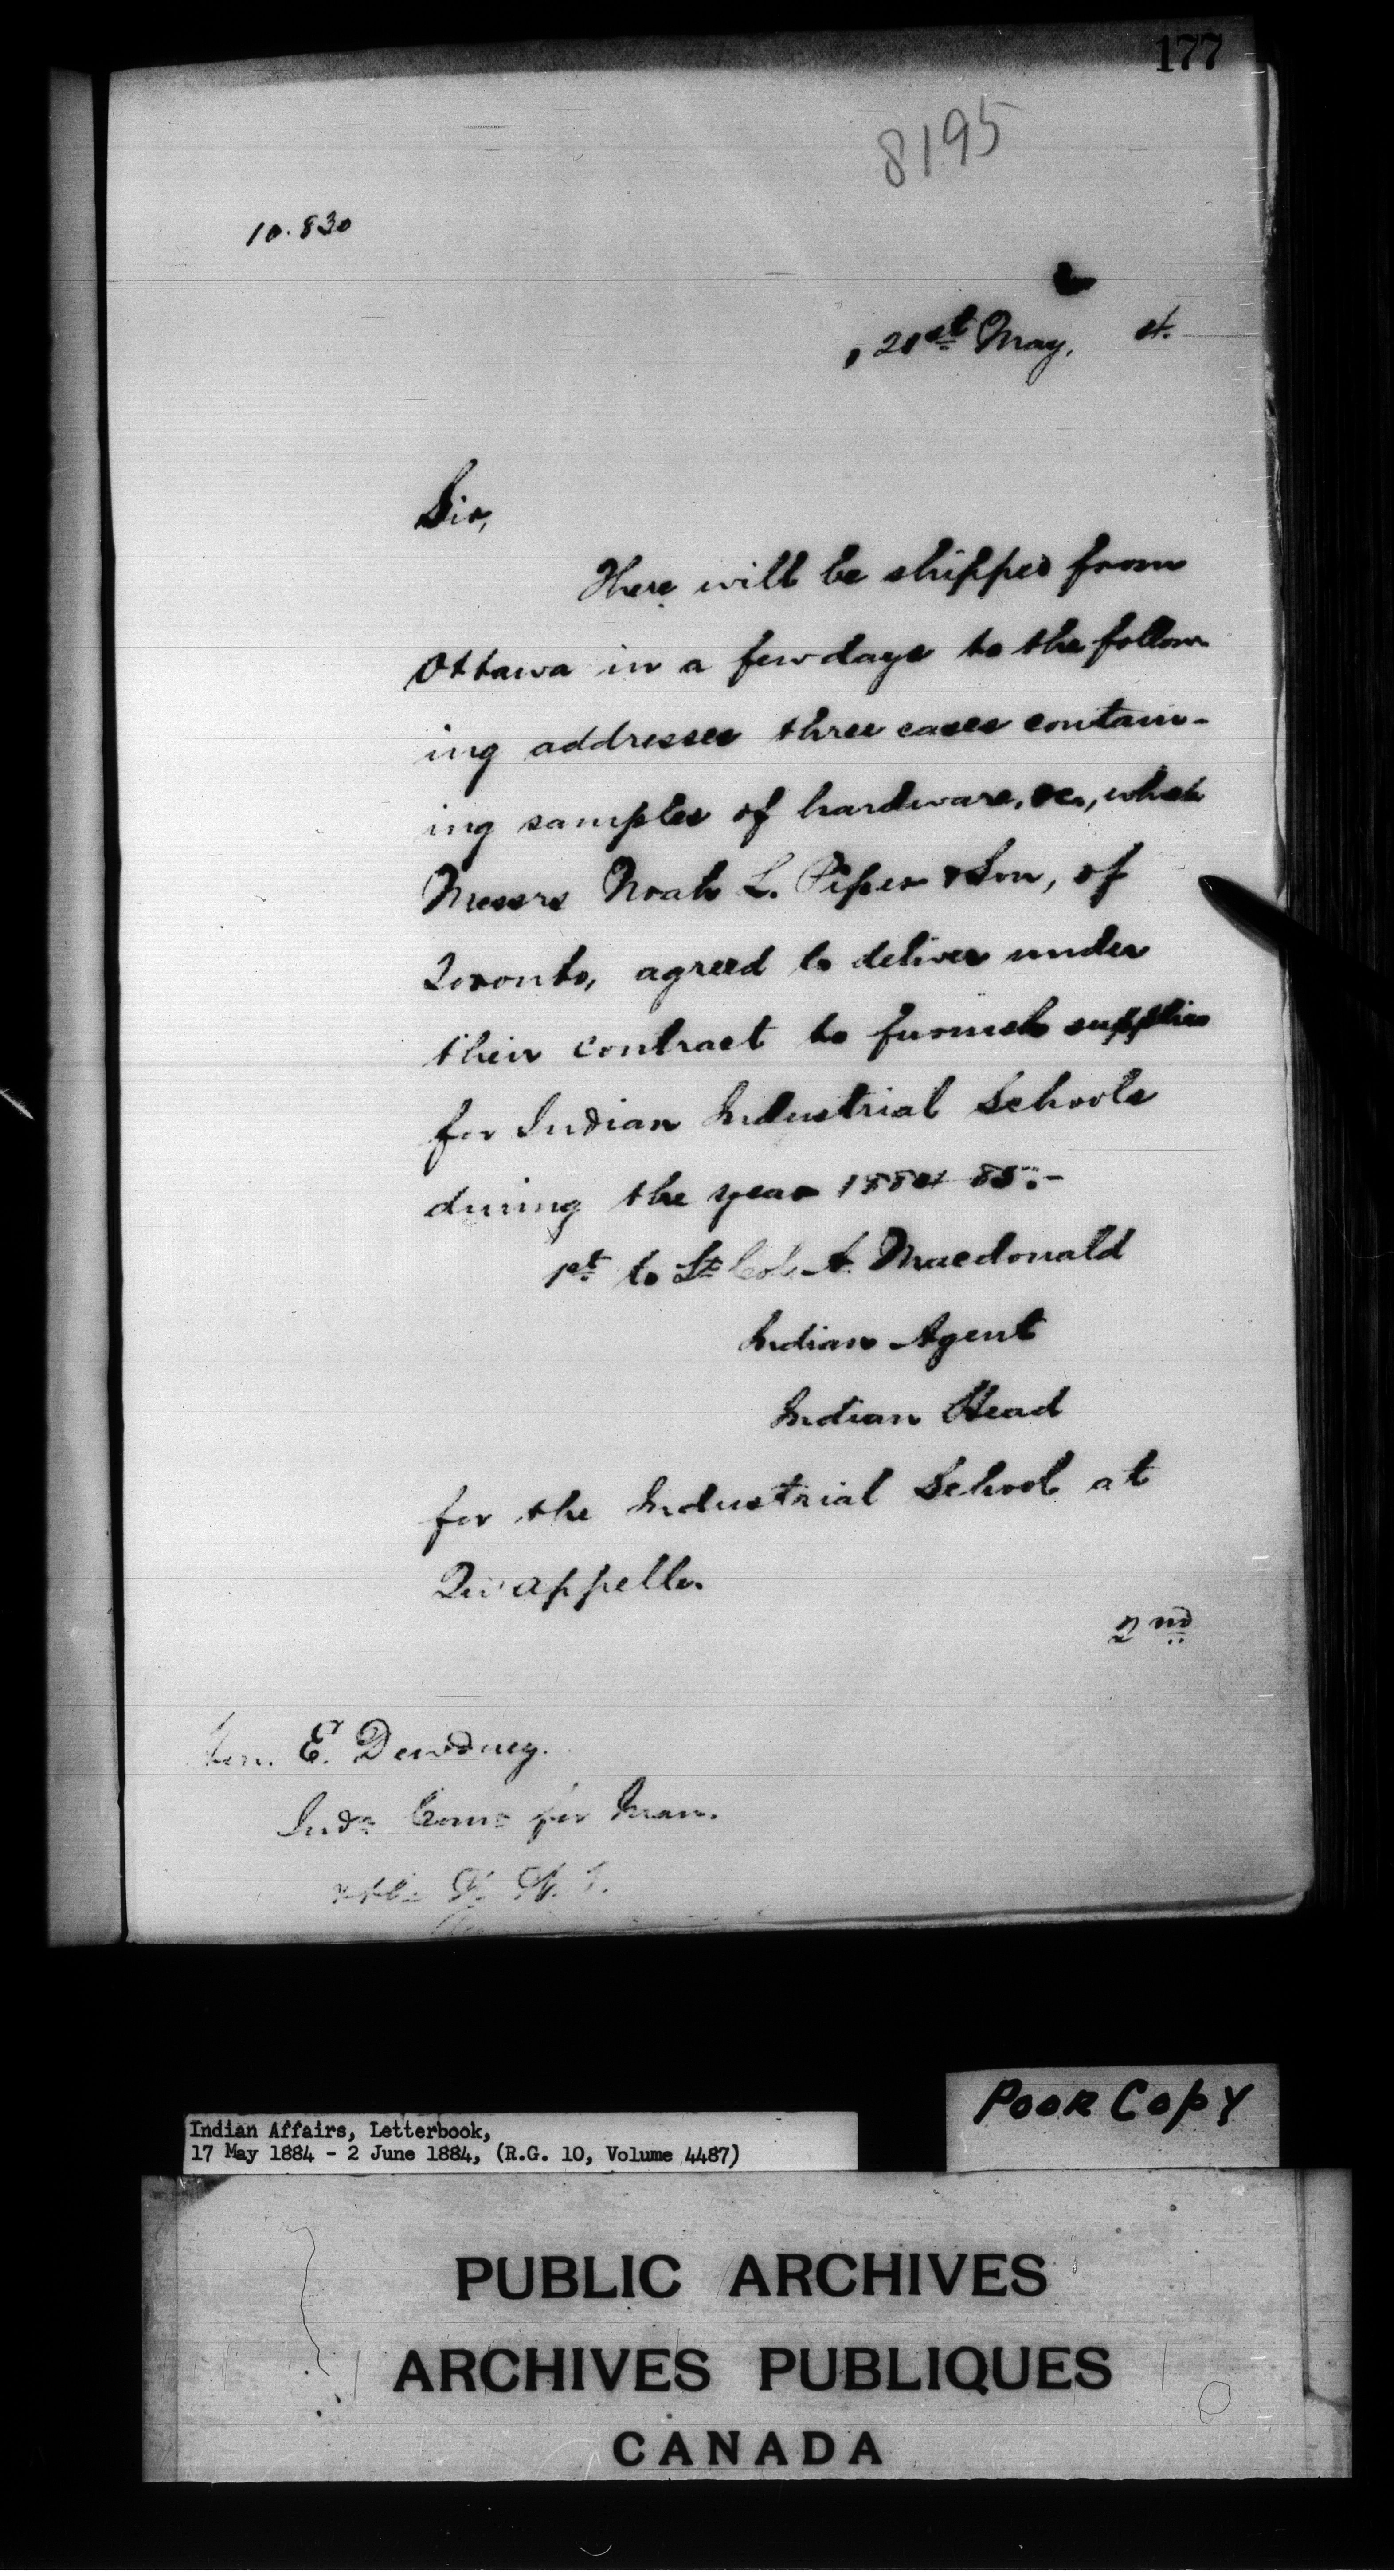 177
8195
10.830
21st May, 4.
Sir,
There will be shipped from
Ottawa in a few days to the follow
ing addresses three cases contain-
ing samples of hardware, &c., which
Messrs Noah L. Piper & Son, of
Toronto, agreed to deliver under
their contract to furnish supplies
for Indian Industrial Schools
during the year 1884-85:-
1st to Lt Col. A. Macdonald
Indian Agent
Indian Head
for the Industrial School at
Qu'appelle.
2nd
Hon. E. Dewdney.
Indn Comr for Man.
& the N. W. T.
Indian Affairs, Letterbook,
17 May 1884 - 2 June 1884, (R.G. 10, Volume 4487)
POOR COPY
PUBLIC ARCHIVES
ARCHIVES PUBLIQUES
CANADA